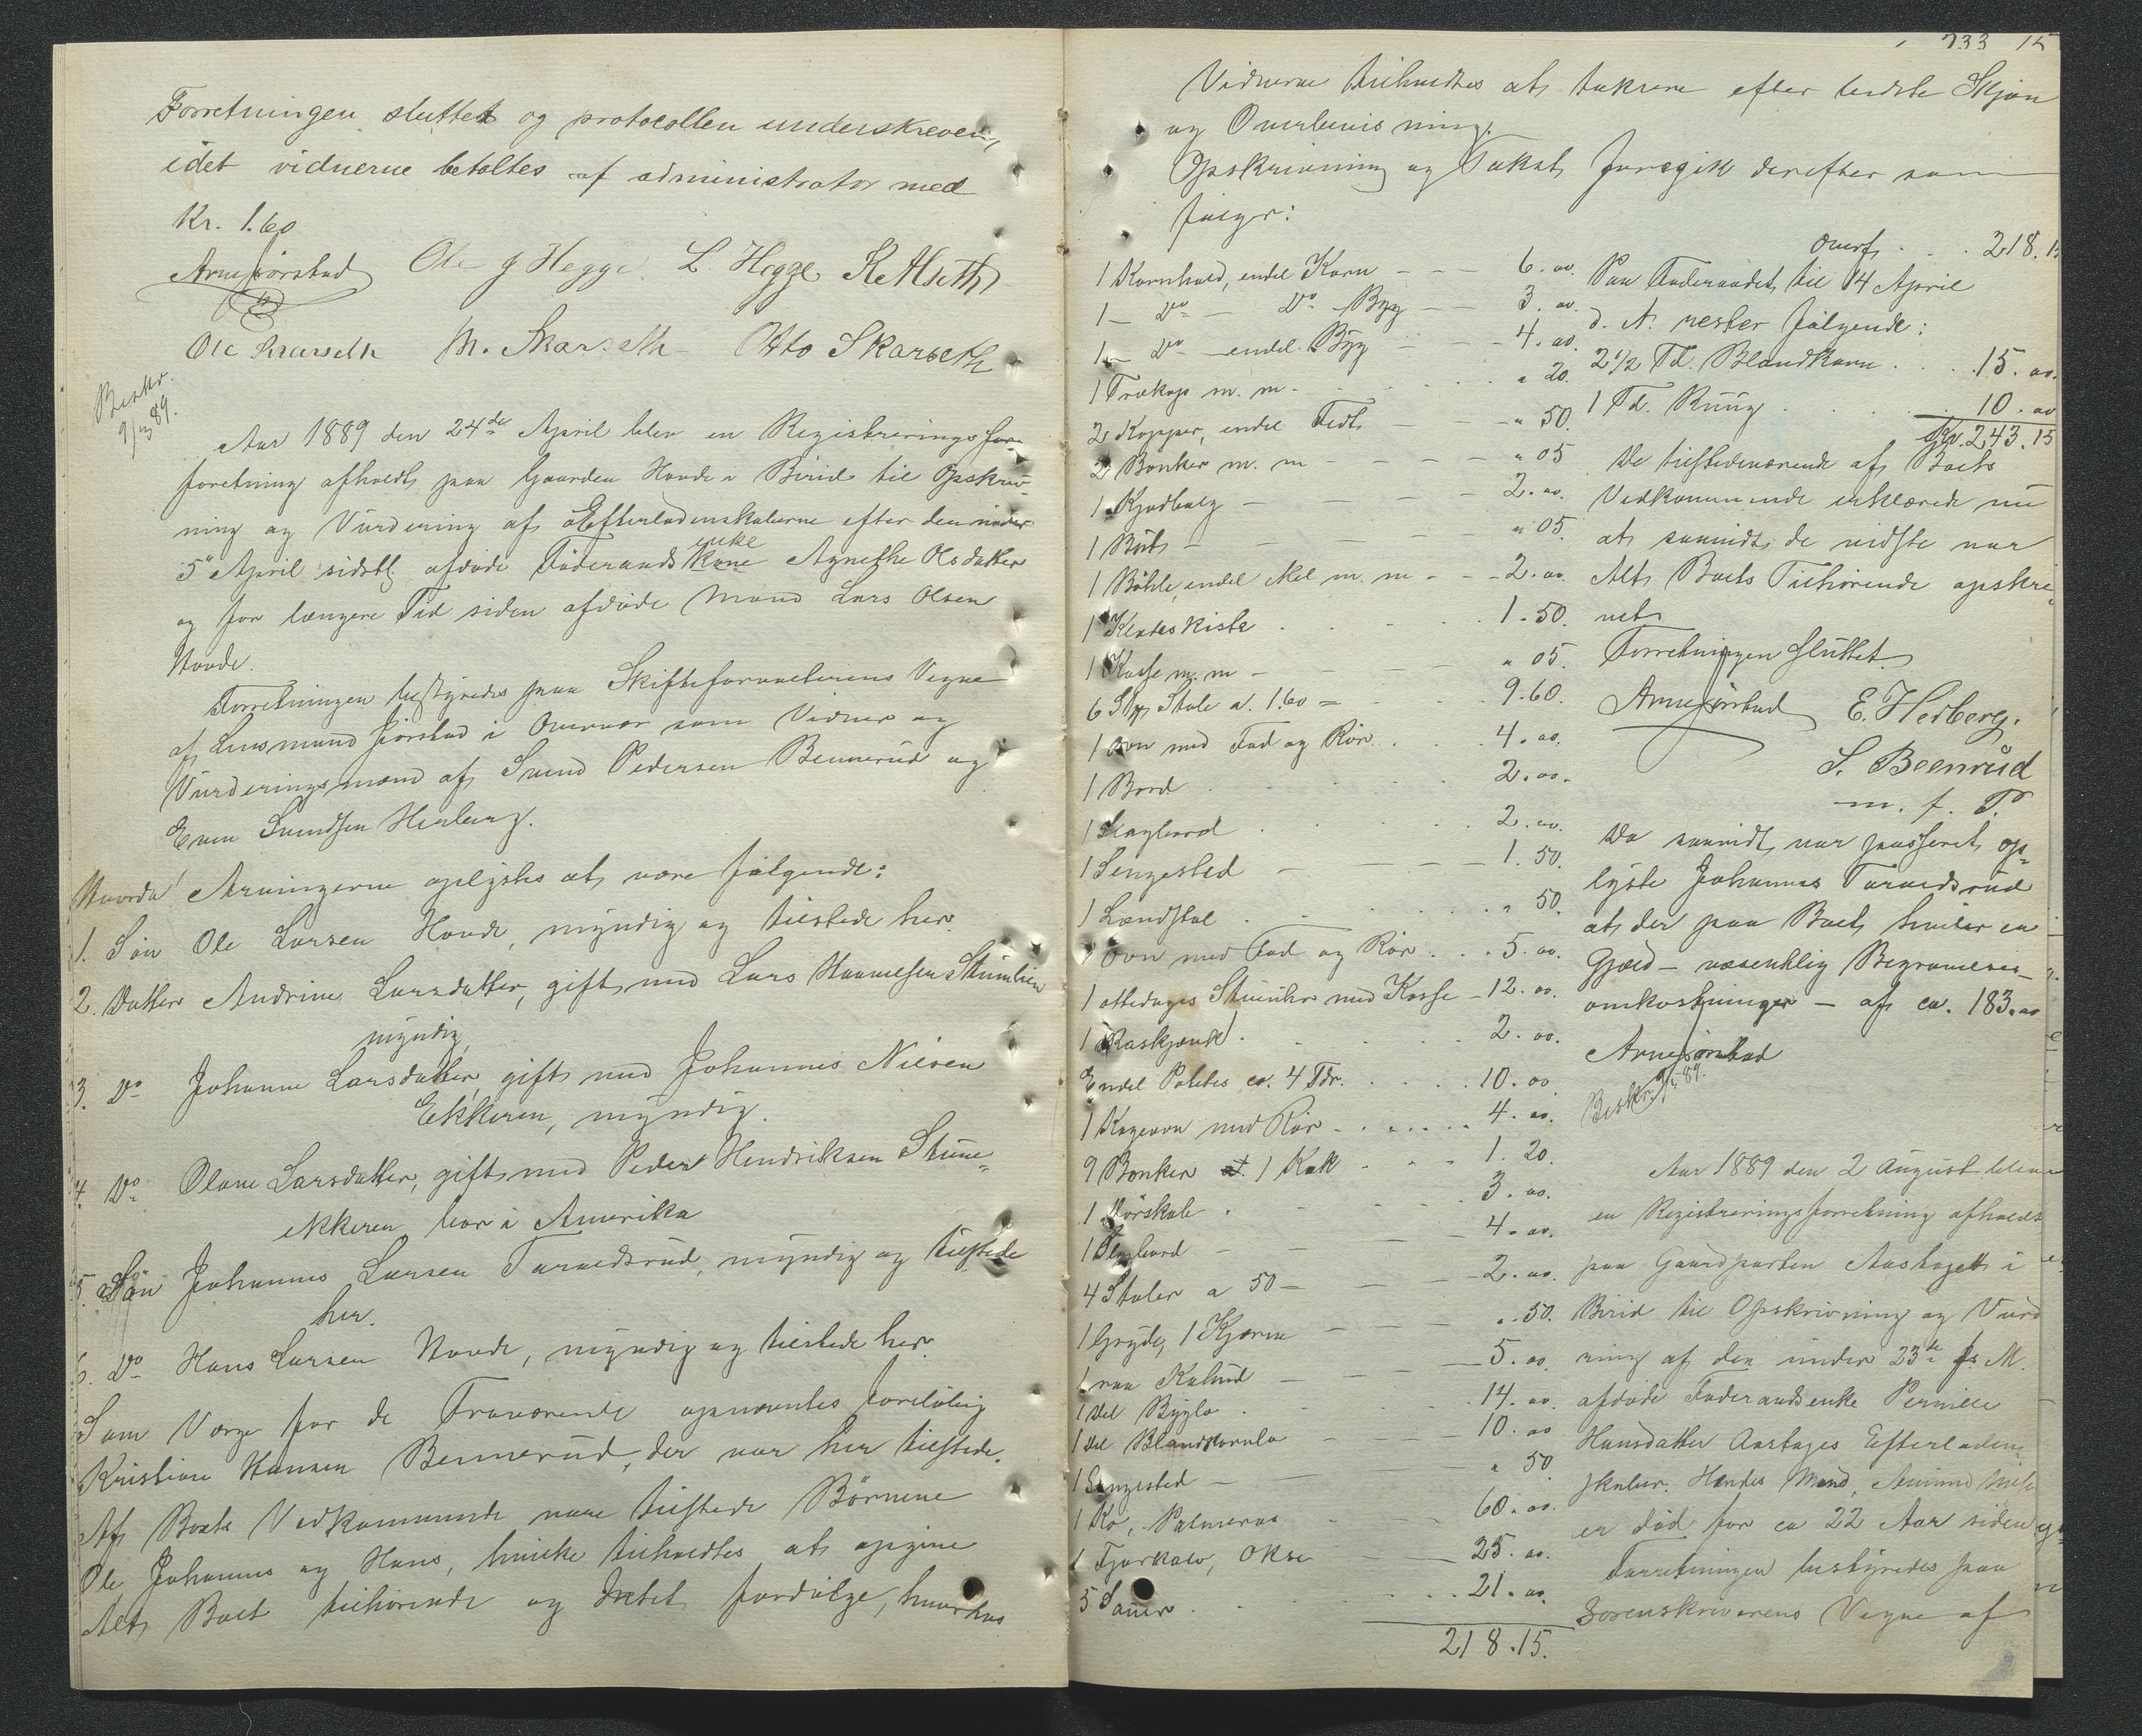 Forretningen sluttet og protocollen underskreven,
idet vidnerne betaltes af administrator med
Kr. 1.60
Arne Jørstad Ole J Hegge L. Hegge
Ole Skarseth M. Skarseth Otto Skarseth
Beskr. 9/5 89.
Aar 1889 den 24de April blev en Registreringsfor-
foretning afholdt paa Gaarden Hovde i Birid til Opskriv-
ning og Vurdering af Efterladenskaberne efter den under
5te April sidstl. afdøde Føderaadskone enke Agnethe Olsdatter
og for længere Tid siden afdøde Mand Lars Olsen
Hovde.
Forretningen bestyredes paa Skifteforvalterens Vegne
af Lensmand Jørstad i Overvær som Vidner og
Vurderingsmænd af Svend Pedersen Bennerud og
Even Svendsen Herberg.
Hovde! Arvingerne oplystes at være følgende:
1. Søn Ole Larsen Hovde, myndig og tilstede her.
2. Datter Andrine Larsdatter, gift med Lars Hannessen Stumlien
myndig,
3. Do Johanne Larsdatter, gift med Johannes Nilsen
Ekkeren, myndig.
4. Do Oleane Larsdatter, gift med Peder Hendriksen Stune-
ekkeren, bor i Amerika
5. Søn Johannes Larsen Tarvedsrud, myndig og tilstede
her.
6. Do Hans Larsen Hovde, myndig og tilstede her.
Som Værge for de Fraværende opnævntes foreløbig
Kristian Hansen Bennerud, der var her tilstede.
Af Boets Vedkommende vare tilstede Børnene
Ole, Johannes og Hans, hvilke tilholdtes at opgive
Alt Boet tilhørende og Intet fordølge, hvorhos
733 15
Vidnerne tilholdtes at taksere efter bedste Skjøn
og Overbevisning.
Opskrivning og Takst foregik derefter som
følger:
1 Kornhold, endel Korn - - 6.00.
1 - Do - Do Byg - - 3.00
1 - Do - endel Byg - - 4.00.
1 Trækop m. m. - " 20.
2 Kopper, endel Fedt - - " 50.
2 Bonker m. m - - " 05
1 Kjødbalg - - 2.00.
1 Bøtt - - " 05.
1 Bøhle, endel Mel m. m - - 2.00.
1 Klædeskiste . . 1.50.
1 Kasse m. m - - " 05.
6 Stkr Stole a. 1.60 = 9.60.
1 Ovn med Fad og Rør . . 4.00.
1 Bord . . 2.00.
1 Slagbord . . 2.00.
1 Sengested - - 1.50.
1 Lændstol . . " 50.
1 Ovn med Fad og Rør . . 5.00.
1 ottedages Stueuhr med Kasse - 12.00.
1 Raskjænk . . 2.00.
Endel Potetes ca. 4 Tdr. . . 10.00
1 Kogeovn med Rør . . 4.00.
9 Bonker 1 Kok . . 1.20.
1 Hørskab . . 3.00.
1 Slagbord - - 4.00.
4 Stoler a 50 - - 2.00.
1 Gryde, 1 Kjærne - - " 50.
1 raa Kohud - - 5.00.
1 Del Byglo . . 14.00
1 Del Blandkornlo - - 10.00
1 Sengested - - " 50
1 Ko, Palmeros - - 60.00.
1 Fjorkalv, Okse - - 25.00.
5 Sauer . . 21.00.
218.15.
Overf. . . 218.15
Paa Føderaadet til 14 April
d. A. rester følgende:
2 1/2 Td. Blandkorn . . 15.00.
1 Td. Rüug . . 10.00
Kr. 243.15
De tilstedeværende af Boets
Vedkommende erklærede nu
at saavidt de vidste var
Alt Boets Tilhørende opskre-
vet.
Forretningen sluttet.
Arne Jørstad E. Herberg.
S. Beenrüd
m. f. P.
Da saavidt var passeret, op-
lyste Johannes Tarvedsrud
at der paa Boet hviler en
Gjæld - væsentlig Begravelses-
omkostninger - af ca. 183.00
Arne Jørstad
Beskr. 9/5 89.
Aar 1889 den 2 August blev
en Registreringsforretning afholdt
paa Gaardparten Aastaget i
Birid til Opskrivning og Vurd
ring af den under 23de f. M.
afdøde Føderaadsenke Pernille
Hansdatter Aastages Efterladen-
skaber. Hendes Mand, Amund
er død for ca 22 Aar siden
Forretningen bestyredes paa
Sorenskriverens Vegne af